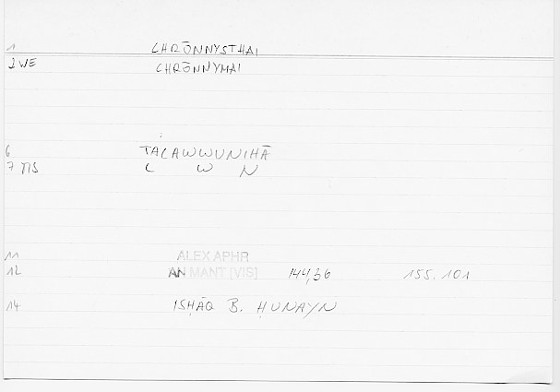 1 CHRŌNNYSTHAI
2 WE CHRŌNNYMAI
6 TALAWWUNIHĀ
7 MS L W N
11 ALEX APHR
12 AN MANT [VIS] 144,36 155.101
14 ISḤĀQ B. ḤUNAYN